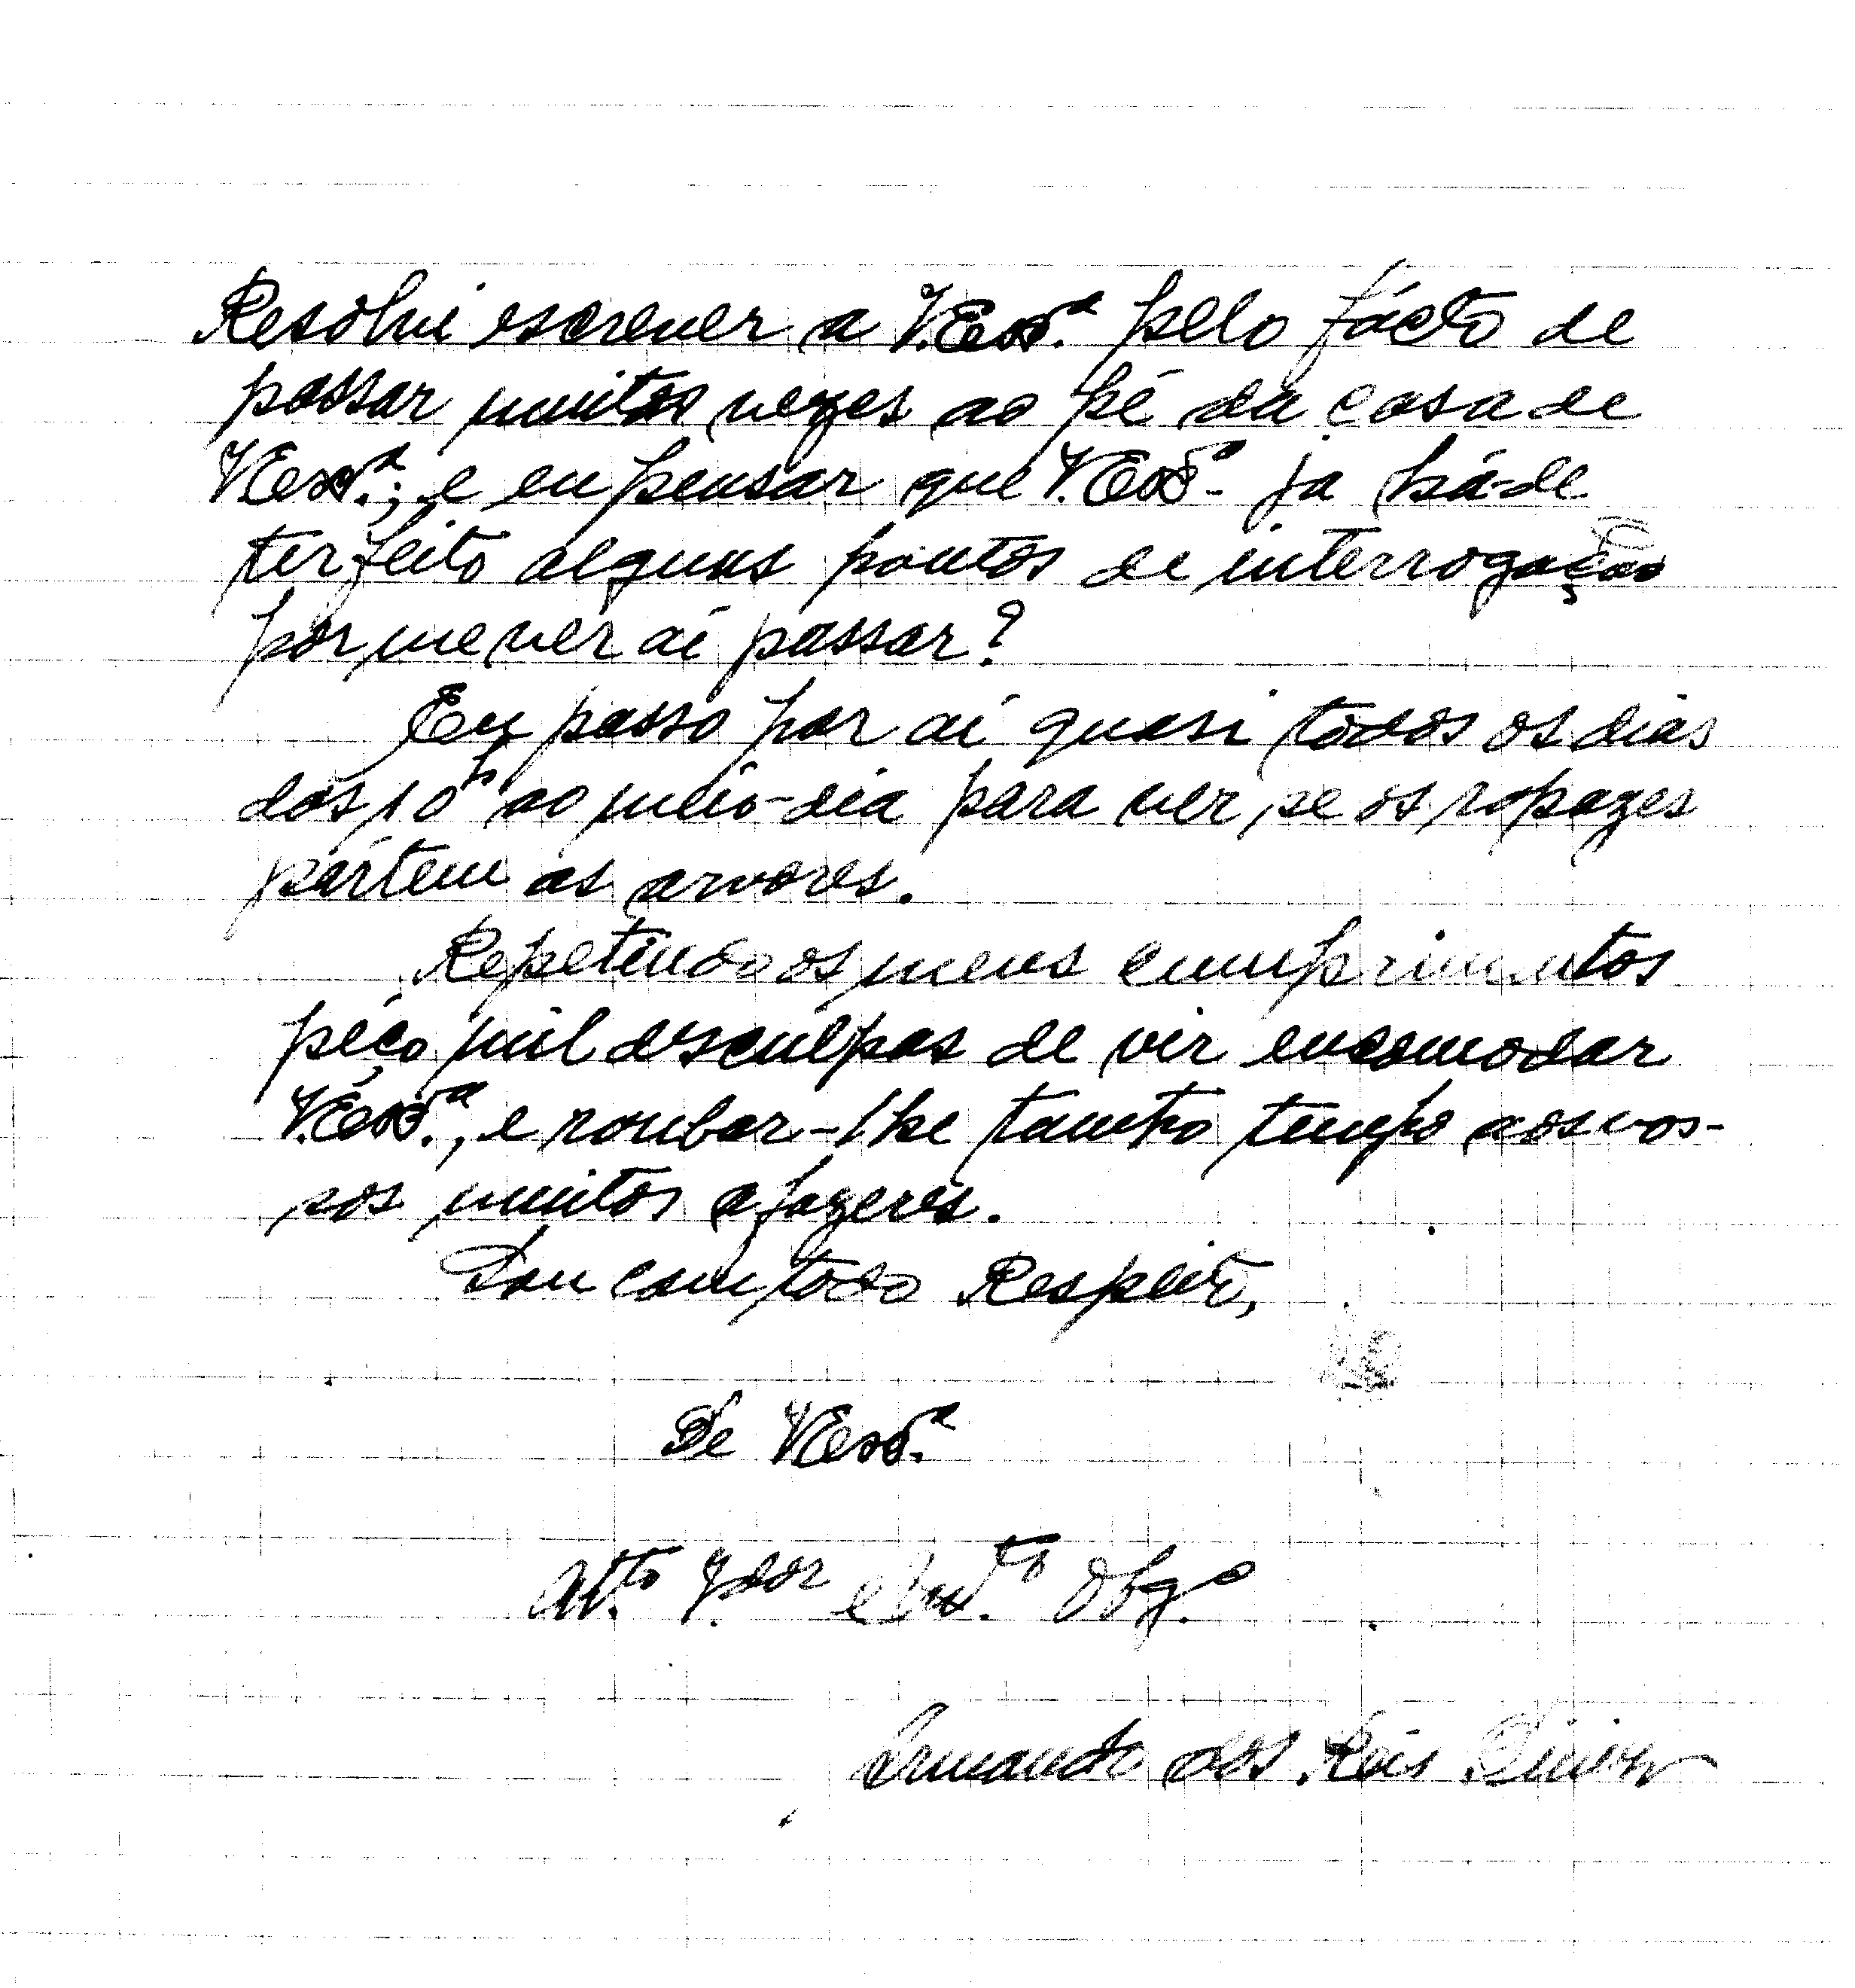 Resolvi escrever a V.Exª. pelo fácto de
passar muitas vezes ao pé da casa de
V.Exª.; e eu pensar que V.Exª. ja há-de
ter feito alguns pontos de interrogação
por me ver aí passar?
Eu passo por aí quasi todos os dias
das 10h ao meio-dia para ver se os rapazes
pártem as arvores.
Repetindo os meus cumprimentos
péço mil desculpas de vir encomodar
V.Exª., e roubar-lhe tanto tempo aos vos-
sos muitos afazeres.
Sou com todo Respeito,
De V.Exª.
Att.º V.dor e Obg.º
Armando dos Reis